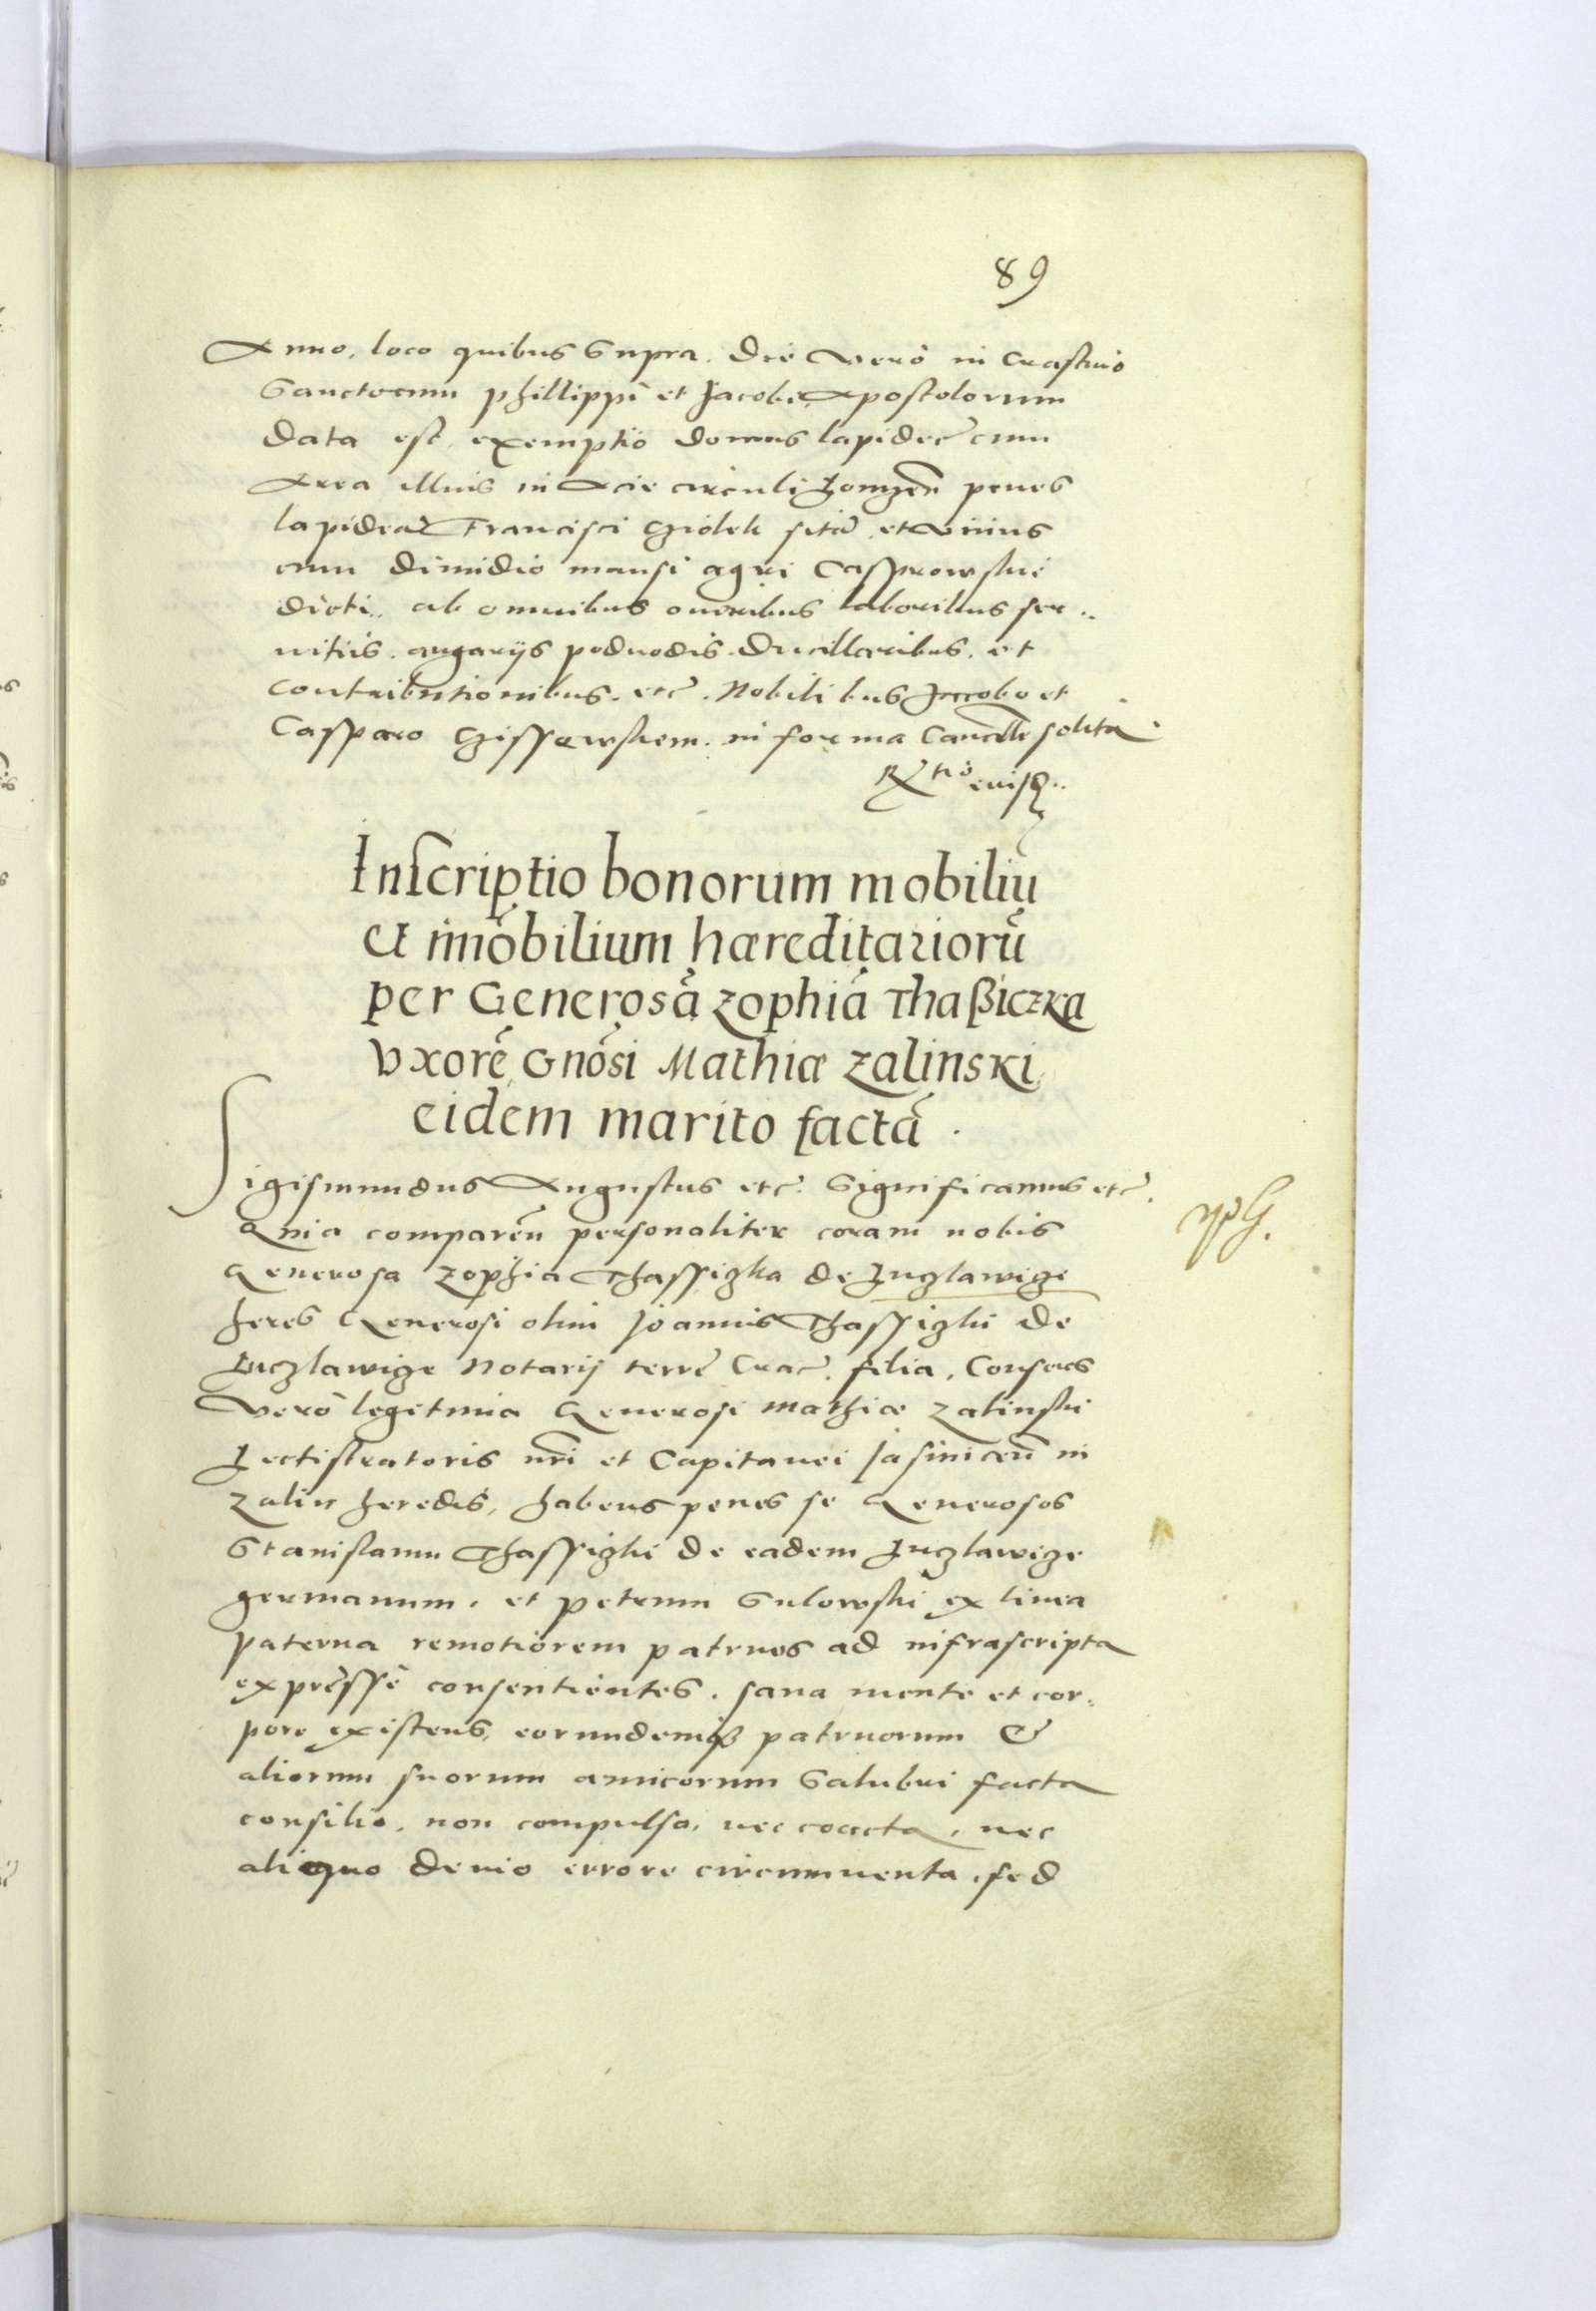 89
Anno, loco quibus Supra. Die vero in Crastino
Sanctorum Phillippi et Jacobi Apostolorum
Data est exemptio domus lapideę cum
Area illius in Acie circuli penes
lapideā Francisci sitā, et unius
cum dimidio mansi agri Casprowskie
dicti.. ab omnibus oneribus laboribus ser..
uitiis. angarijs poduodis. Ducillaribus. et
Contributionibus. etc. Nobilibus Jacobo et
Casparo in forma Cancelle solita.
Inscriptio bonorum mobiliū
et im̄obilium hæreditariorū
per Generosā Zophiā Thaßiczka
Vxorē Gnōsi Mathiæ Zalinski
eidem marito facta ·
Sigismundus Augustus etc. Significamus etc.
Quia comparēn personaliter coram nobis
Generosa Zophia Thassiczka de Luczlawicze
heres Generosi olim Joannis Thassiczki de
Luczlawicze Notarij terrę Crac. filia, Consors
Vero legitima Generosi Mathiæ Zalinski
nr̄i et Capitanei Jasinicen̄ in
Zalin heredis, habens penes se Generosos
Stanislaum Thassiczki de eadem Luczlawicze
germanum, et Petrum Sulowski ex linea
paterna remotiorem patruos ad infrascripta
expresse consentientes. sana mente et cor:
pore existens, eorundemqꝫ patruorum &
aliorum suorum amicorum Salubri facta
consilio, non compulsa, nec coacta, nec
aliquo deuio errore circumuenta, sed